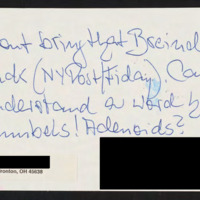 out bring that Breind
ack (NYPost/Friday). Can
nderstand a word h
umbels! Adenoids?
Ironton, OH 45638